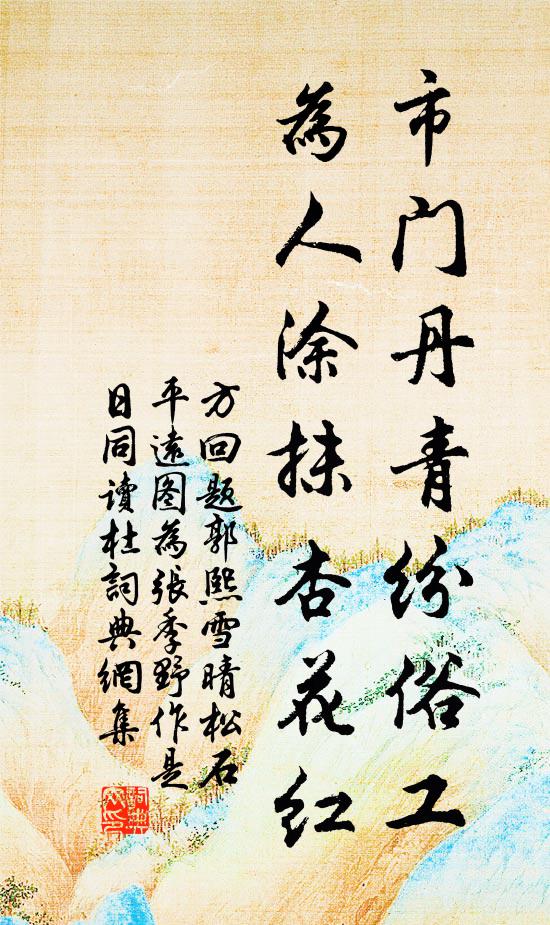 市门丹青纷俗工
为人涂抹杏花红
方回题郭熙雪晴松石
平遠图为张季野作是
日同读杜詞典網集